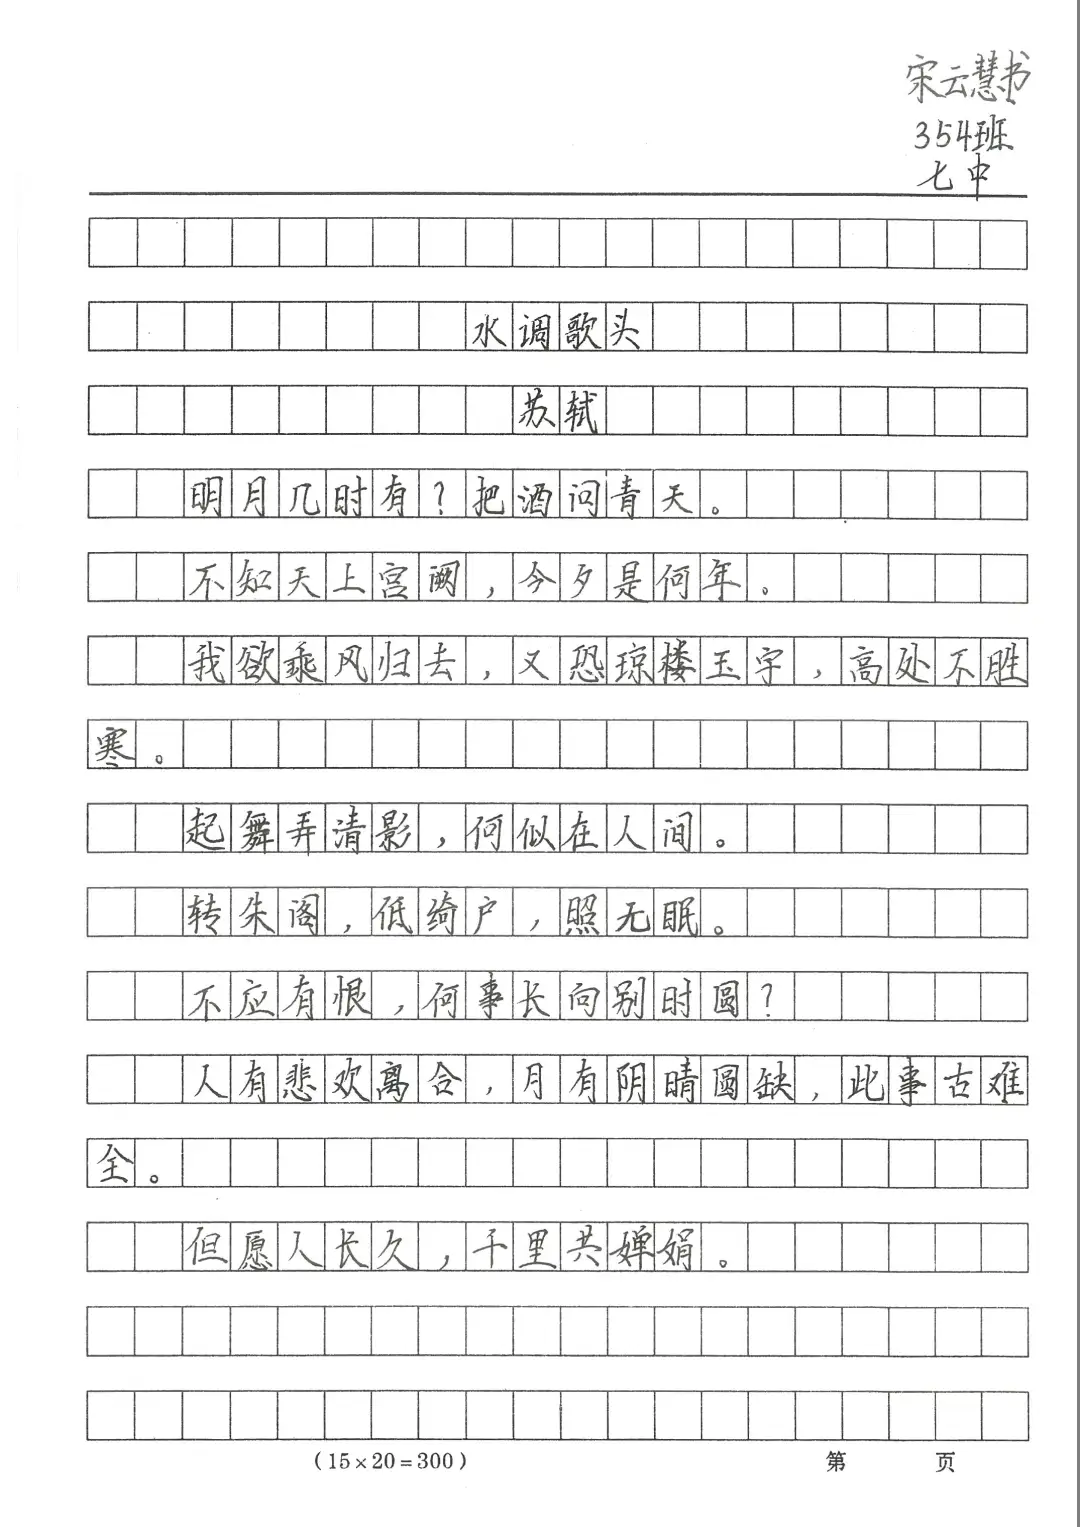 宋云慧书
354班
七中
水调歌头
苏轼
明月几时有？把酒问青天。
不知天上宫阙，今夕是何年。
我欲乘风归去，又恐琼楼玉宇，高处不胜
寒。
起舞弄清影，何似在人间。
转朱阁，低绮户，照无眠。
不应有恨，何事长向别时圆？
人有悲欢离合，月有阴晴圆缺，此事古难
全。
但愿人长久，千里共婵娟。
(15×20=300) 第 页